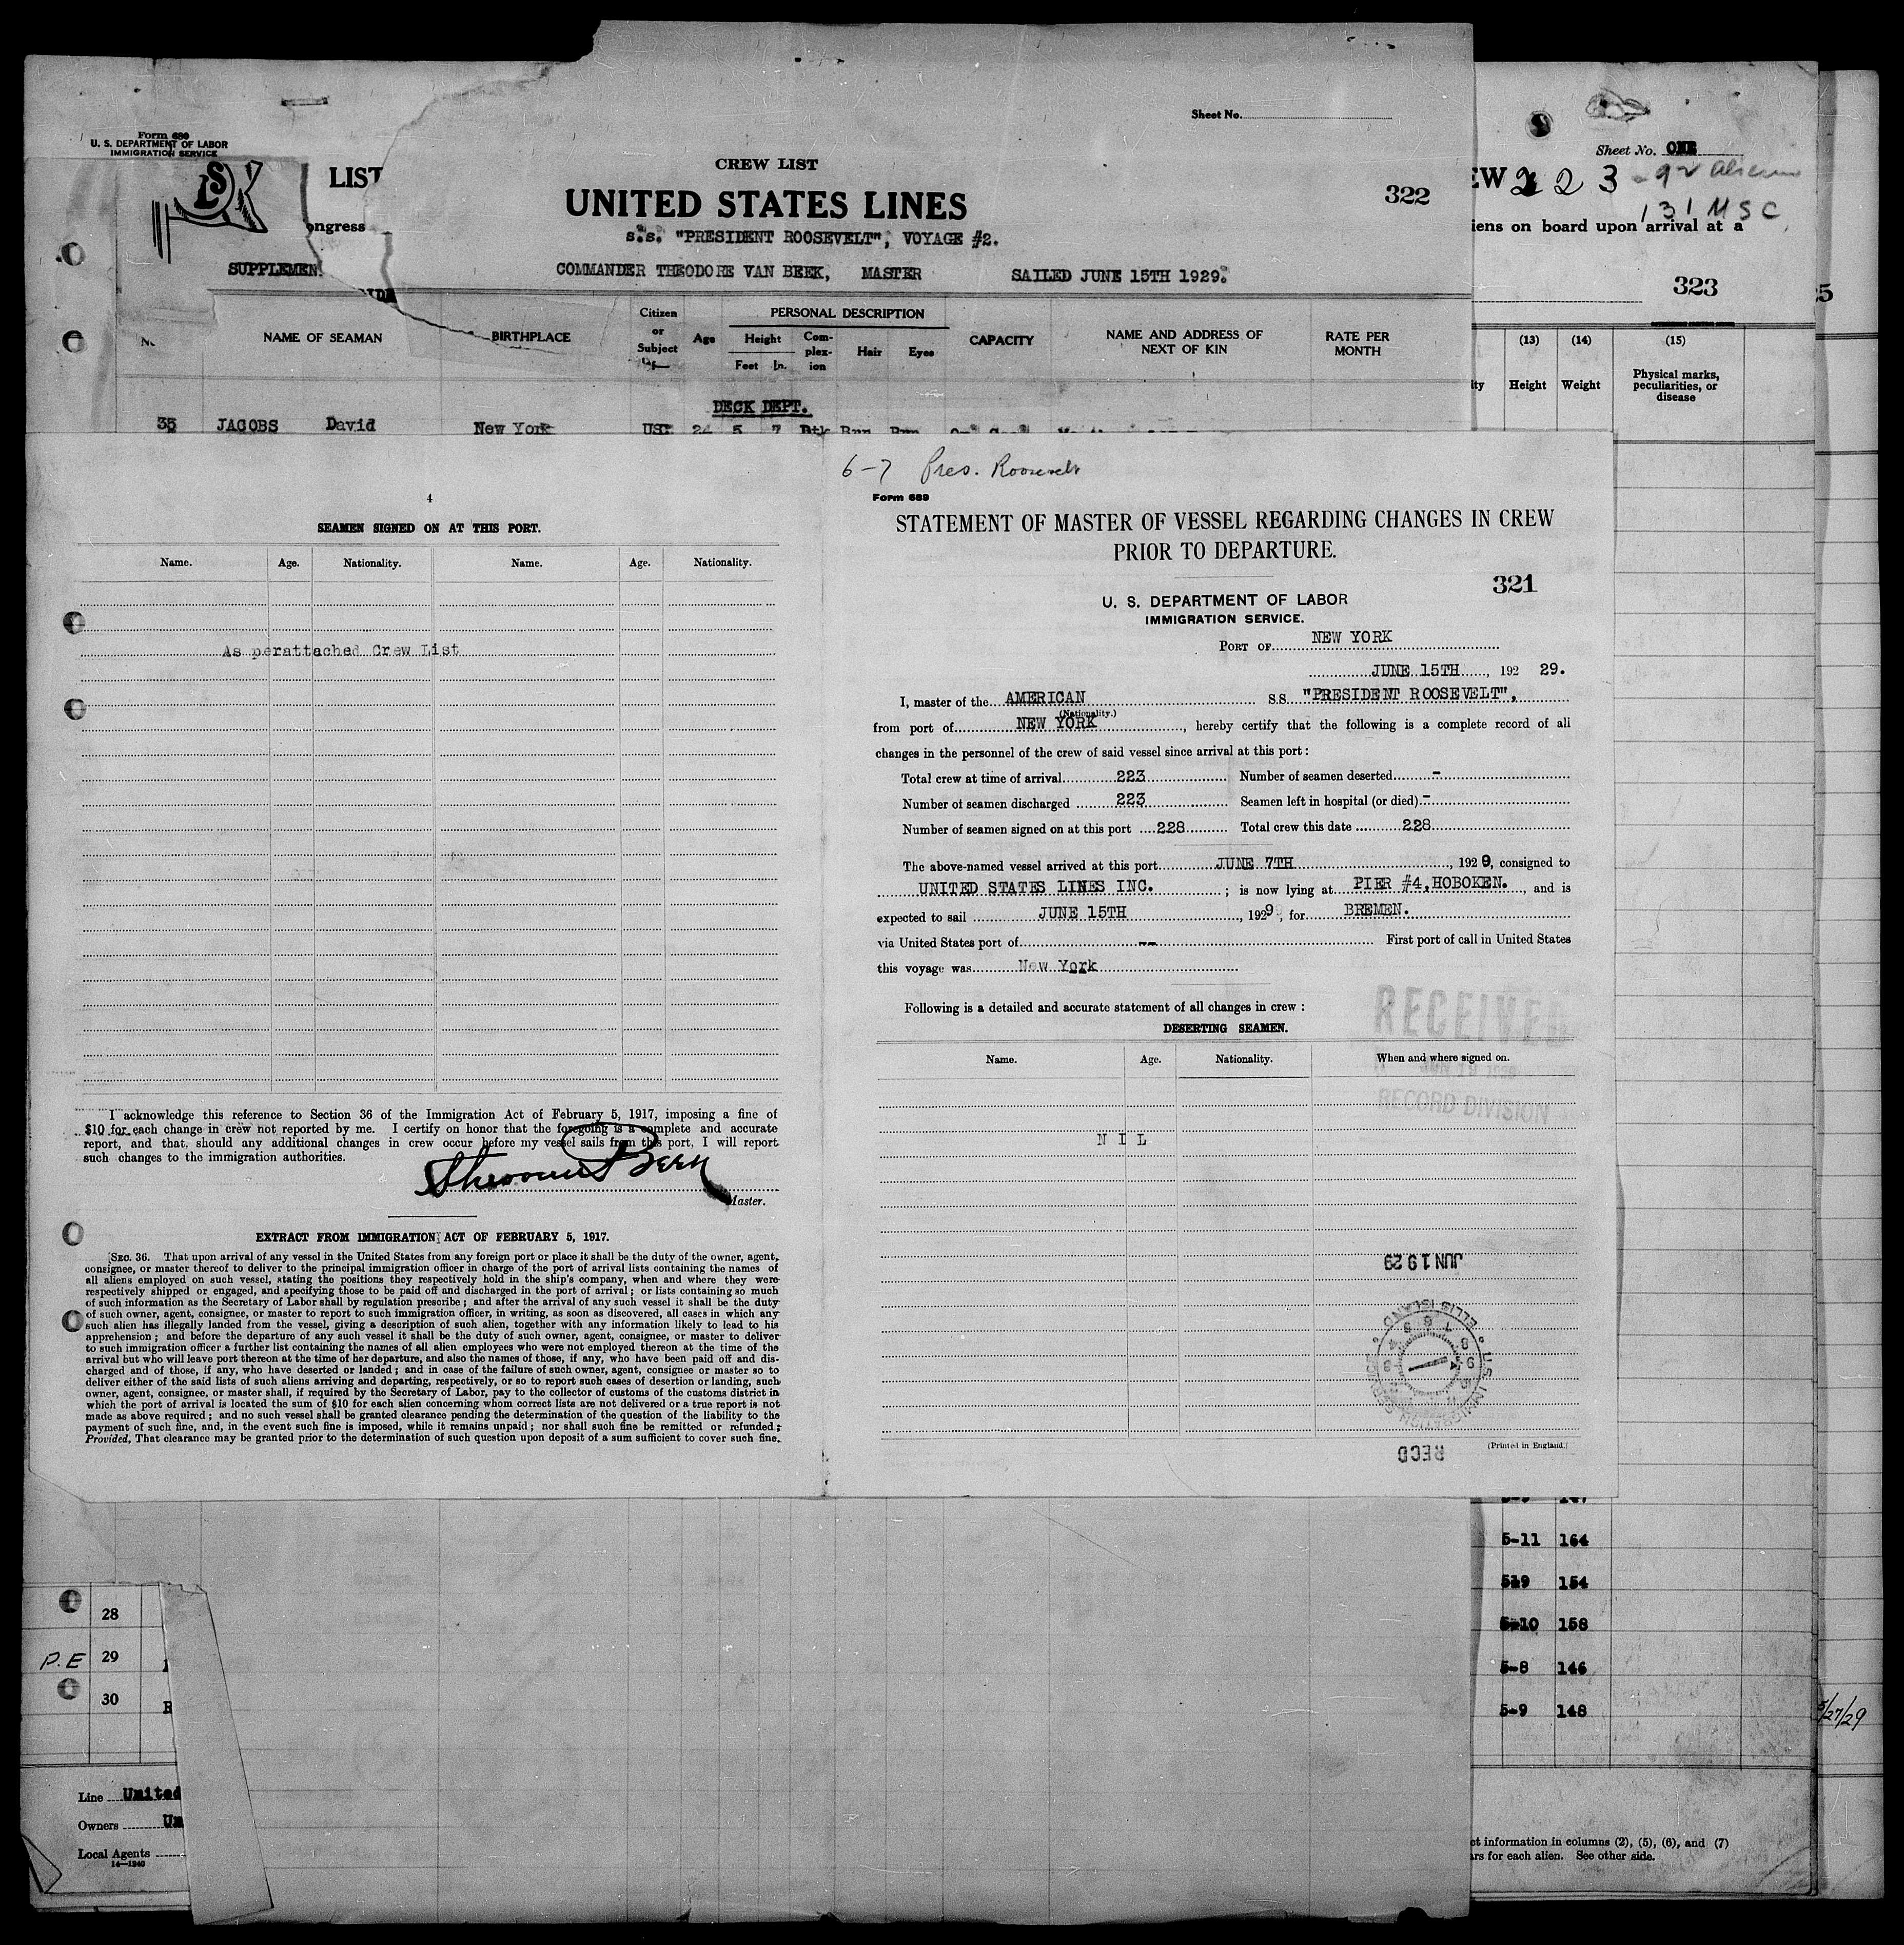 Form 680
U. S. DEPARTMENT OF LABOR
IMMIGRATION SERVICE
LIST
ongress
SUPPLEMEN
Sheet No.
CREW LIST
UNITED STATES LINES
322
s.s. "PRESIDENT ROOSEVELT", VOYAGE #2.
COMMANDER THEODORE VAN BEEK, MASTER SAILED JUNE 15TH 1929.
NAME OF SEAMAN
BIRTHPLACE
Citizen or Subject of
Age
PERSONAL DESCRIPTION
Height
Feet In.
Com-plex-ion
Hair
Eyes
CAPACITY
NAME AND ADDRESS OF NEXT OF KIN
RATE PER MONTH
DECK DEPT.
35 JACOBS David New York USC 24 5 7
Sheet No. ONE
EW 223
131 MSC
iens on board upon arrival at a
323
5
(13) (14) (15)
ity Height Weight Physical marks, peculiarities, or disease
4
SEAMEN SIGNED ON AT THIS PORT.
Name. Age. Nationality. Name. Age. Nationality.
As perattached Crew List
I acknowledge this reference to Section 36 of the Immigration Act of February 5, 1917, imposing a fine of
$10 for each change in crew not reported by me. I certify on honor that the foregoing is a complete and accurate
report, and that, should any additional changes in crew occur before my vessel sails from this port, I will report
such changes to the immigration authorities.
Master.
EXTRACT FROM IMMIGRATION ACT OF FEBRUARY 5, 1917.
SEC. 36. That upon arrival of any vessel in the United States from any foreign port or place it shall be the duty of the owner, agent,
consignee, or master thereof to deliver to the principal immigration officer in charge of the port of arrival lists containing the names of
all aliens employed on such vessel, stating the positions they respectively hold in the ship's company, when and where they were
respectively shipped or engaged, and specifying those to be paid off and discharged in the port of arrival; or lists containing so much
of such information as the Secretary of Labor shall by regulation prescribe; and after the arrival of any such vessel it shall be the duty
of such owner, agent, consignee, or master to report to such immigration officer, in writing, as soon as discovered, all cases in which any
such alien has illegally landed from the vessel, giving a description of such alien, together with any information likely to lead to his
apprehension; and before the departure of any such vessel it shall be the duty of such owner, agent, consignee, or master to deliver
to such immigration officer a further list containing the names of all alien employees who were not employed thereon at the time of the
arrival but who will leave port thereon at the time of her departure, and also the names of those, if any, who have been paid off and dis-
charged and of those, if any, who have deserted or landed; and in case of the failure of such owner, agent, consignee or master so to
deliver either of the said lists of such aliens arriving and departing, respectively, or so to report such cases of desertion or landing, such
owner, agent, consignee, or master shall, if required by the Secretary of Labor, pay to the collector of customs of the customs district in
which the port of arrival is located the sum of $10 for each alien concerning whom correct lists are not delivered or a true report is not
made as above required; and no such vessel shall be granted clearance pending the determination of the question of the liability to the
payment of such fine, and, in the event such fine is imposed, while it remains unpaid; nor shall such fine be remitted or refunded:
Provided, That clearance may be granted prior to the determination of such question upon deposit of a sum sufficient to cover such fine.
6-7 Pres. Roosevelt
Form 689
STATEMENT OF MASTER OF VESSEL REGARDING CHANGES IN CREW
PRIOR TO DEPARTURE.
321
U. S. DEPARTMENT OF LABOR
IMMIGRATION SERVICE.
PORT OF NEW YORK
JUNE 15TH, 192 29.
I, master of the AMERICAN S.S. "PRESIDENT ROOSEVELT",
(Nationality.)
from port of NEW YORK, hereby certify that the following is a complete record of all
changes in the personnel of the crew of said vessel since arrival at this port:
Total crew at time of arrival 223 Number of seamen deserted -
Number of seamen discharged 223 Seamen left in hospital (or died) -
Number of seamen signed on at this port 228 Total crew this date 228
The above-named vessel arrived at this port JUNE 7TH, 1929, consigned to
UNITED STATES LINES INC.; is now lying at PIER #4, HOBOKEN., and is
expected to sail JUNE 15TH, 1929, for BREMEN.
via United States port of -- First port of call in United States
this voyage was New York
Following is a detailed and accurate statement of all changes in crew:
DESERTING SEAMEN.
RECEIVED
JUN 19 1929
RECORD DIVISION
Name. Age. Nationality. When and where signed on.
N I L
JUN 19 29
U.S. IMMIGRATION SERVICE ELLIS ISLAND
RECD
(Printed in England.)
28
P.E 29
30
Line United
Owners Un
Local Agents
14-1240
5-11 164
5-9 154
5-10 158
5-8 146
5-9 148
5/27/29
ct information in columns (2), (5), (6), and (7)
rs for each alien. See other side.